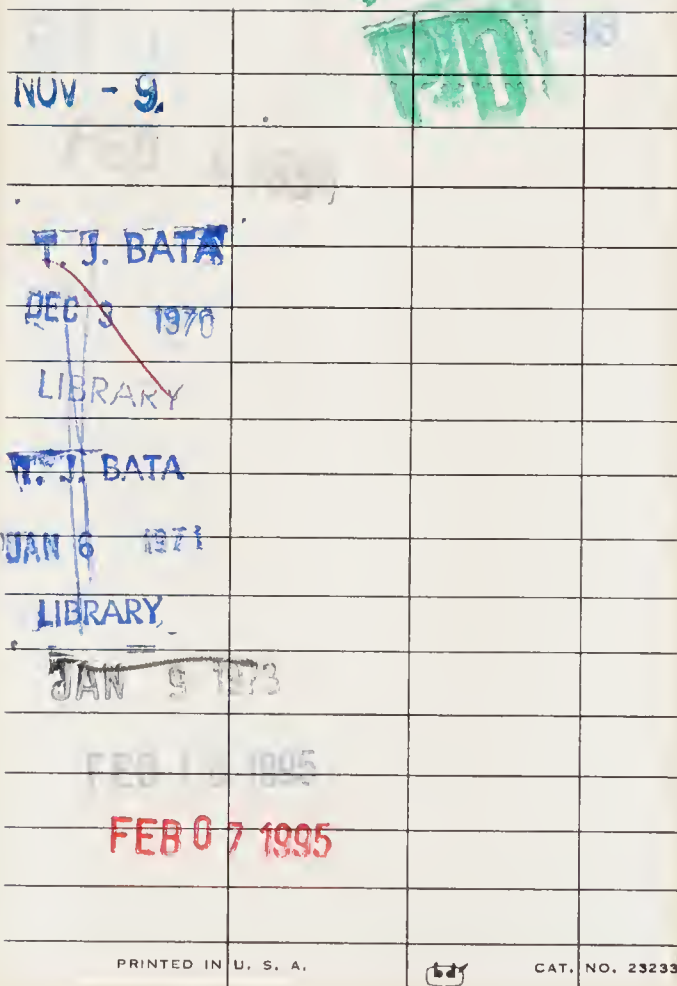 PD
NOV - 9
FEB
T. J. BATA
DEC 3 1970
LIBRARY
T. J. BATA
JAN 6 1971
LIBRARY
JAN 9 1973
FEB 1 1995
FEB 07 1995
PRINTED IN U. S. A.
CAT. NO. 23233